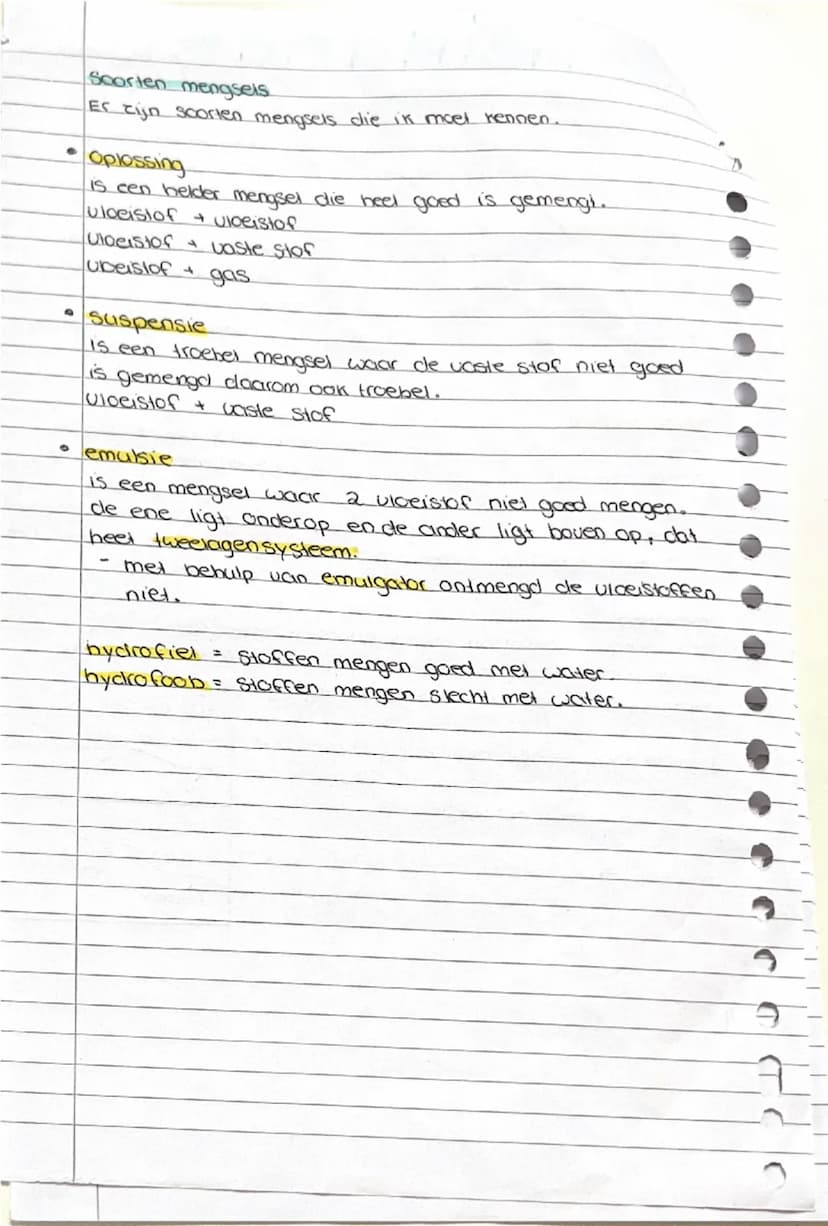 Soorten mengsels
Er zijn soorten mengsels die ik moet kennen.
• oplossing
is een helder mengsel die heel goed is gemengt.
vloeistof + vloeistof
vloeistof + vaste stof
vloeistof + gas
• suspensie
is een troebel mengsel waar de vaste stof niet goed
is gemengd daarom ook troebel.
vloeistof + vaste stof
• emulsie
is een mengsel waar 2 vloeistof niet goed mengen.
de ene ligt onderop en de ander ligt boven op, dat
heet tweelagensysteem.
- met behulp van emulgator ontmengd de vloeistoffen
niet.
hydrofiel = stoffen mengen goed met water.
hydrofoob = stoffen mengen slecht met water.